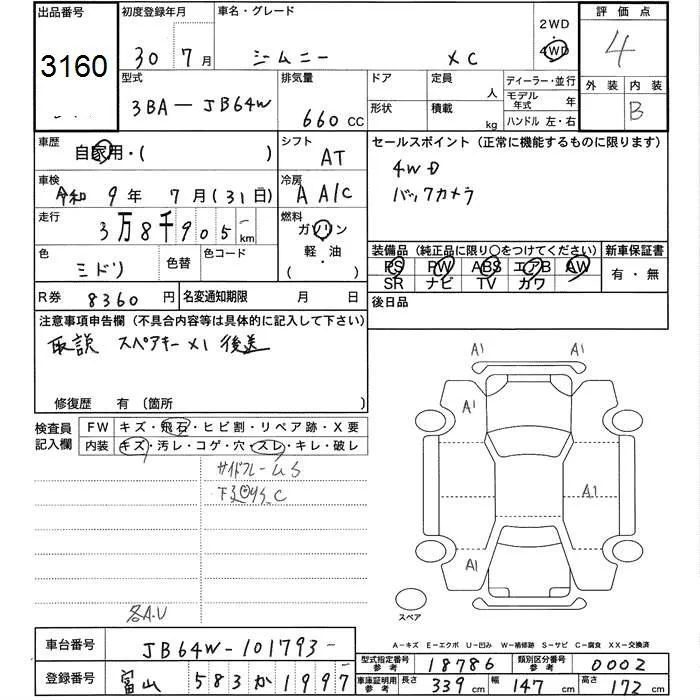 出品番号
3160
初度登録年月
30 7月
車名・グレード
ジムニー XC
2WD
4WD
評価点
4
外装 内装
B
型式
3BA-JB64W
排気量
660 CC
ドア
形状
定員 人
積載 kg
ディーラー・並行
モデル年式 年
ハンドル 左・右
車歴
自家用・( )
シフト
AT
車検
令和 9年 7月(31日)
冷房
A A/C
走行
3万8千905 km
燃料
ガソリン
軽・油
( )
色
ミドリ
色替
色コード
R券 8360円
名変通知期限 月 日
セールスポイント(正常に機能するものに限ります)
4WD
バックカメラ
装備品(純正品に限り○をつけてください)
PS PW ABS エアB AW
SR ナビ TV カワ
新車保証書
有・無
後日品
注意事項申告欄(不具合内容等は具体的に記入して下さい)
取説 スペアキー×1 後送
修復歴 有(箇所 )
検査員記入欄
FW キズ・飛石・ヒビ割・リペア跡・X要
内装 キズ・汚レ・コゲ・穴・スレ・キレ・破レ
サイドフレームS
各A.U
A1 A1
A1
A1
A1
スペア
A-キズ E-エクボ U-凹み W-補修跡 S-サビ C-腐食 XX-交換済
車台番号 JB64W-101793-
登録番号 富山 583か1997
型式指定番号参考 18786
類別区分番号参考 0002
車庫証明用参考 長さ 339cm 幅 147cm 高さ 172cm